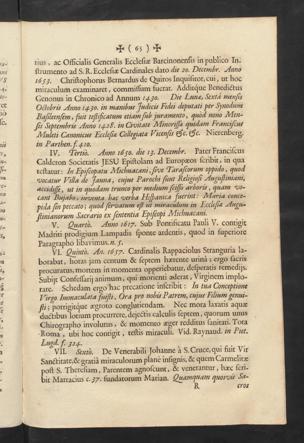 ✠ ( 65 ) ✠
tius, ac Officialis Generalis Ecclesiæ Barcinonensis in publico In-
strumento ad S. R. Ecclesiæ Cardinales dato die 20. Decembr. Anno
1653. Christophorus Bernardus de Quiros Inquisitor, cui, ut hoc
miraculum examinaret, commissum fuerat. Additque Benedictus
Genonus in Chronico ad Annum 1430. Die Lunæ, Sexta mensis
Octobris Anno 1430. in manibus Judicis Fidei deputati per Synodum
Basileensem, fuit testificatum etiam sub juramento, quod nono Men-
sis Septembris Anno 1428. in Civitate Minorissa quidam Franciscus
Muleti Canonicus Ecclesiæ Collegiatæ Vicensis &c. &c. Nieremberg.
in Parthen. f. 420.
IV. Tertiò. Anno 1650. die 13. Decembr. Pater Franciscus
Calderon Societatis JESU Epistolam ad Europæos scribit, in qua
testatur: In Episcopatu Michuacani, sive Tarascorum oppido, quod
vocatur Villa de Jauna, cujus Parochi sunt Religiosi Augustiniani,
accidisse, ut in quodam trunco per medium scisso arboris, quam vo-
cant Tojambo, inventa hæc verba Hispanica fuerint: Maria conce-
pida sin peccato; quod servatum est ut miraculum in Ecclesia Augu-
stinianorum Sacrario ex sententia Episcopi Michuacani.
V. Quartò. Anno 1617. Sub Pontificatu Pauli V. contigit
Madriti prodigium Lampadis sponte ardentis, quod in superiore
Paragrapho libavimus. n. 5.
VI. Quintò. An. 1657. Cardinalis Rappaciolus Stranguria la-
borabat, horas jam centum & septem hærente urinâ; ergo sacris
procuratus, mortem in momenta opperiebatur, desperatis remediis.
Subijt Confessarij animum, qui morienti aderat, Virginem implo-
rare. Schedam ergo hac precatione inscribit: In tua Conceptione
Virgo Immaculata fuisti, Ora pro nobis Patrem, cujus Filium genui-
sti; porrigitque ægroto conglutiendam. Nec mora laxatis aquæ
ductibus lotum procurrere, dejectis calculis septem, quorum unus
Chirographo involutus, & momento æger redditus sanitati. Tota
Roma, ubi hoc contigit, testis miraculi. Vid. Raynaud. in Piet.
Lugd. f. 324.
VII. Sextò. De Venerabili Johanne à S. Cruce, qui fuit Vir
Sanctitate, & gratiâ miraculorum planè insignis, & quem Carmelitæ
post S. Theresiam, Parentem agnoscunt, & venerantur, hæc scri-
bit Marracius c. 37. fundatorum Marian. Quamquam quorvis Sa-
R cros